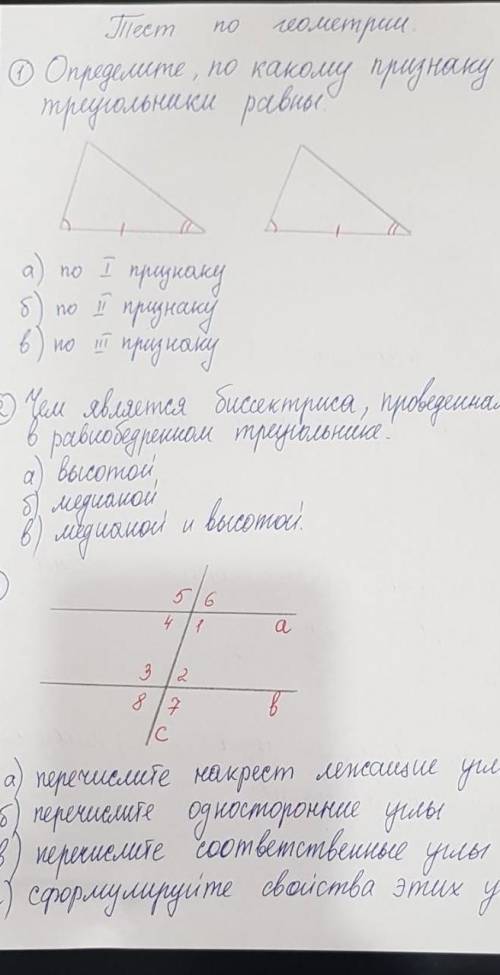 Тест по геометрии.
① Определите, по какому признаку
треугольники равны.
а) по I признаку
б) по II признаку
в) по III признаку
2) Чем является биссектриса, проведенная
в равнобедренном треугольнике.
а) высотой
б) медианой
в) медианой и высотой.
5 6
4 1 a
3 2
8 7 b
c
а) перечислите накрест лежащие угл
б) перечислите односторонние углы
в) перечислите соответственные углы
г) сформулируйте свойства этих у